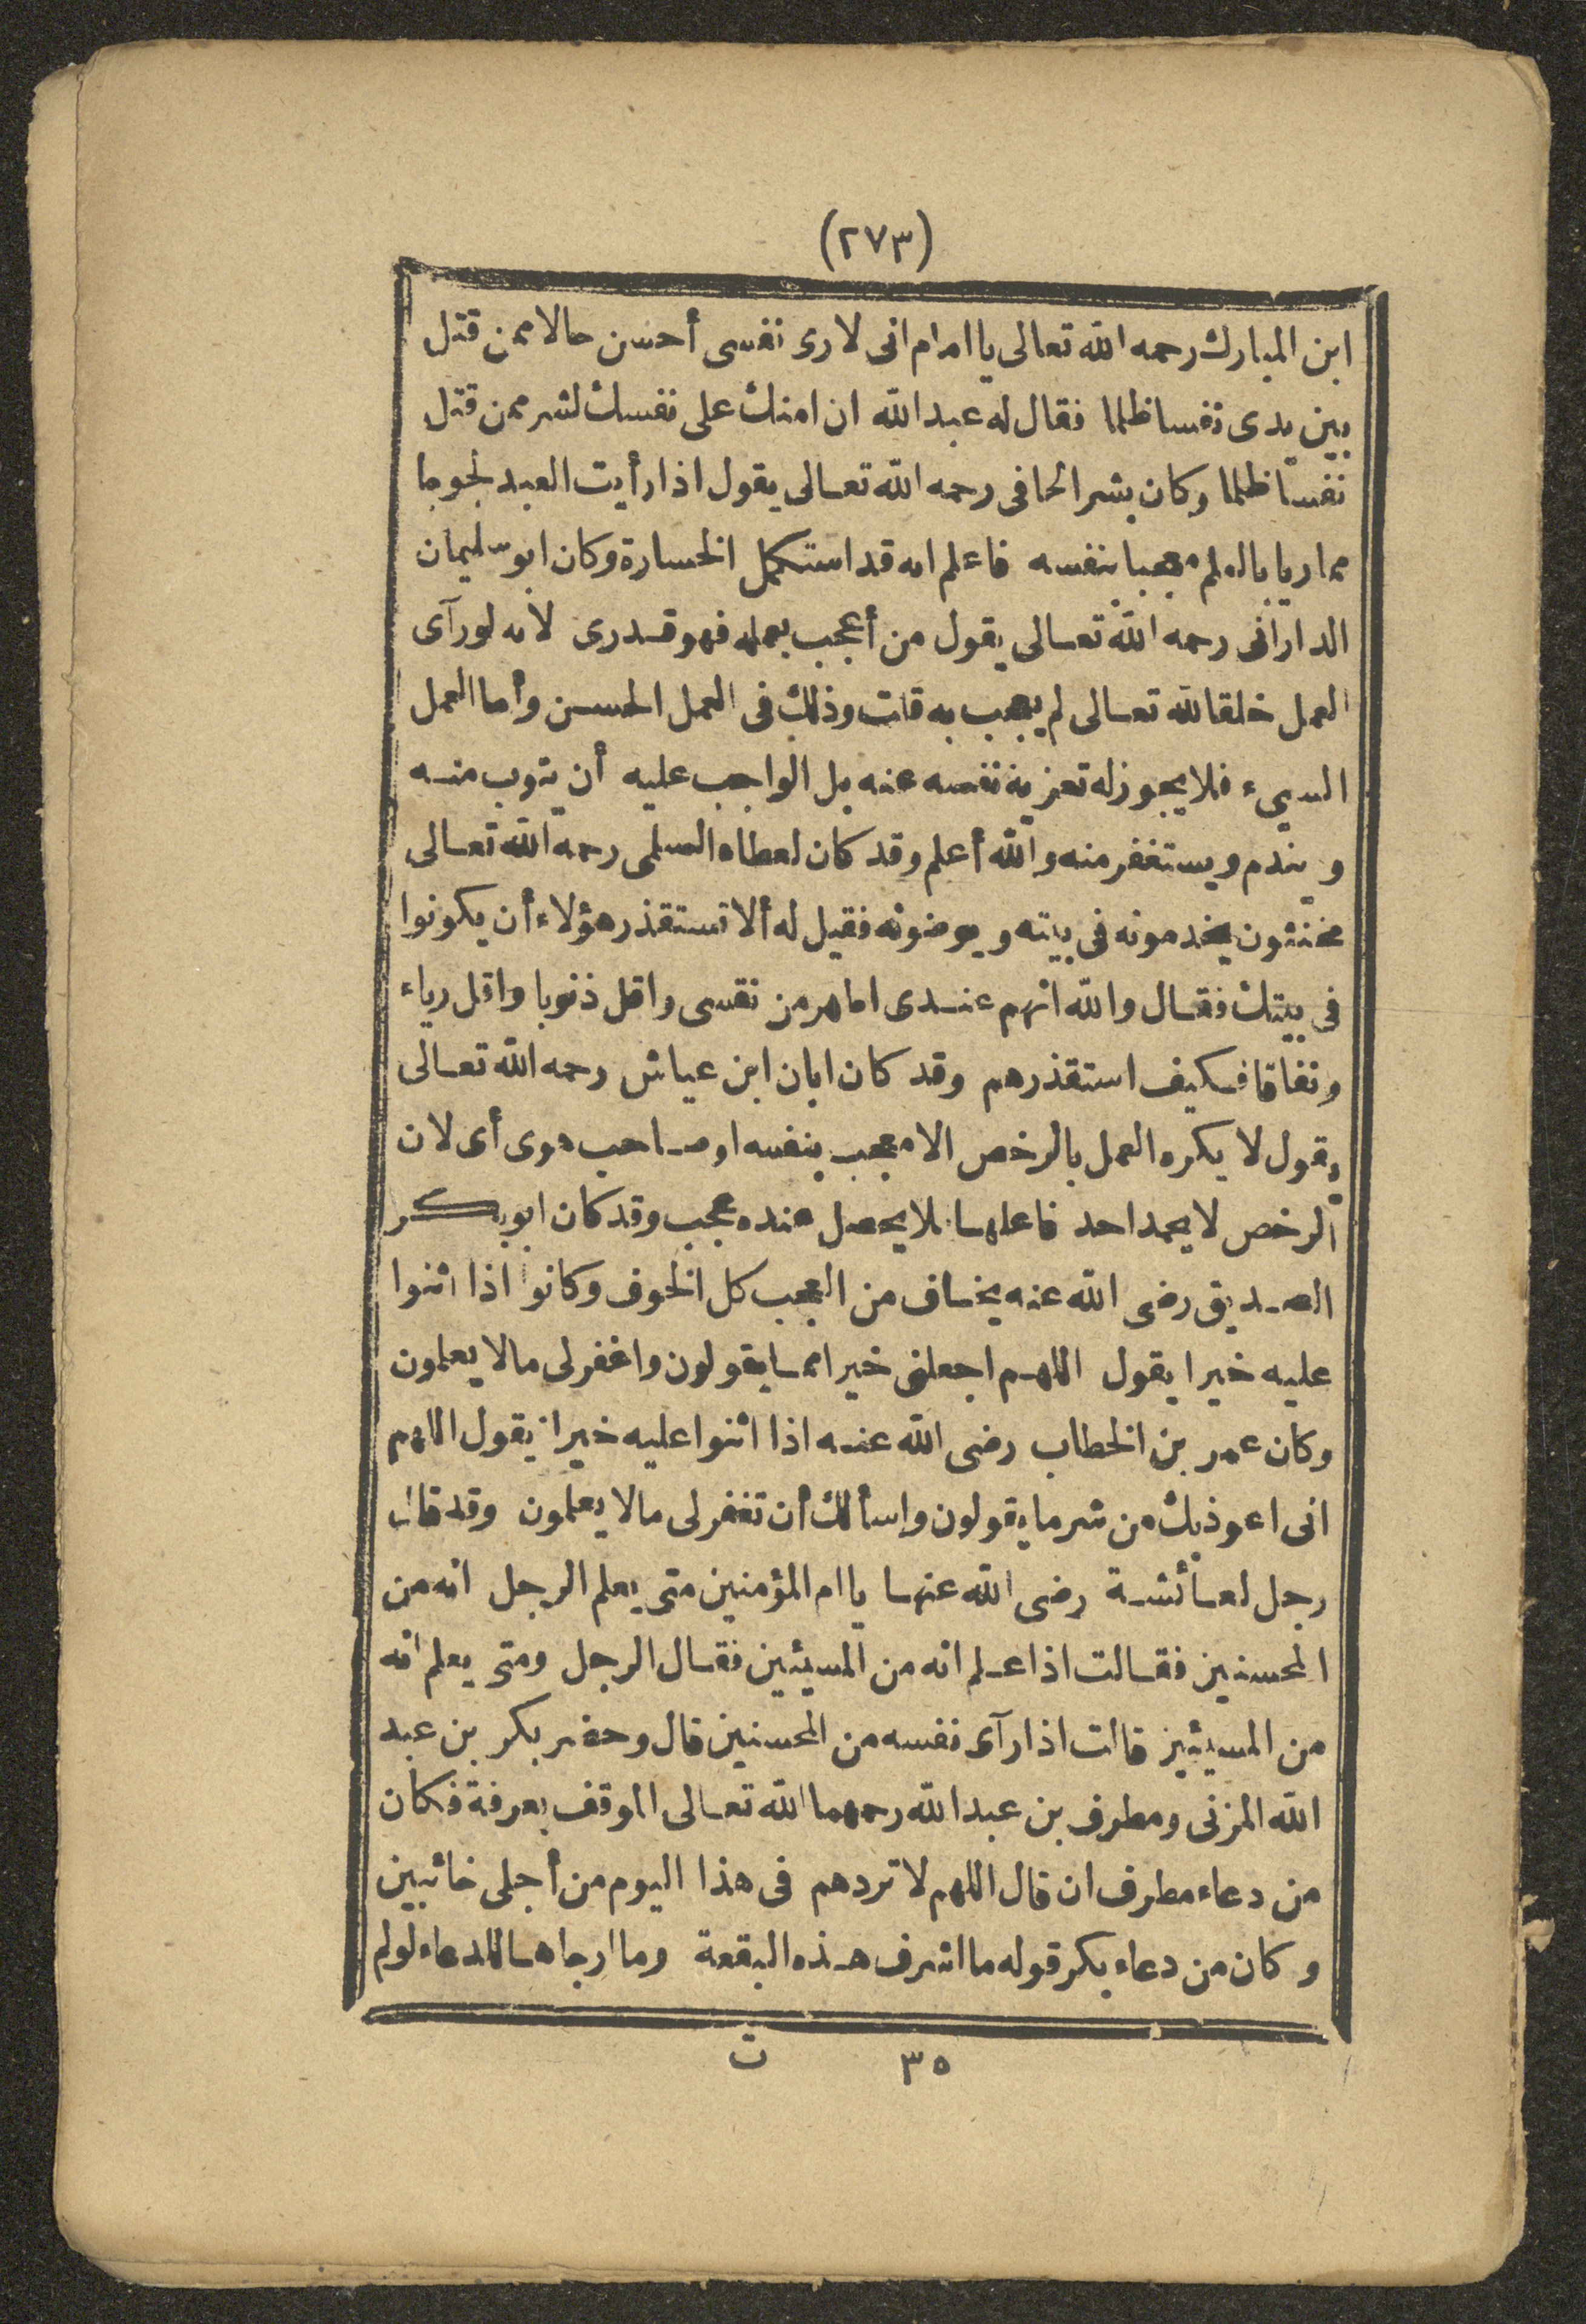 (٢٧٣)
ابن المبارك رحمه الله تعالى يا امام انى لارى نفسى أحسن حالا ممن قتل
بين يدى نفسا ظلما فقال له عبد الله ان امنك على نفسك لشر ممن قتل
نفسا ظلما وكان بشر الحافى رحمه الله تعالى يقول اذا رأيت العبد لجوجا
مماريا بالعلم معجبا بنفسه فاعلم انه قد استكمل الخسارة وكان ابو سليمان
الدارانى رحمه الله تعالى يقول من أعجب بعمله فهو قدرى لانه لو رآى
العمل خلقا لله تعالى لم يعجب به قلت وذلك فى العمل الحسن وأما العمل
السيء فلا يجوز له تعزية نفسه عنه بل الواجب عليه أن يتوب منه
ويندم ويستغفر منه والله أعلم وقد كان لعطاء السلمى رحمه الله تعالى
مخنثون يخدمونه فى بيته ويوضونه فقيل له ألا تستقذر هؤلاء أن يكونوا
فى بيتك فقال والله انهم عندى اطهر من نفسى واقل ذنوبا واقل رياء
ونفاقا فكيف استقذرهم وقد كان ابان ابن عياش رحمه الله تعالى
يقول لا يكره العمل بالرخص الا معجب بنفسه او صاحب هوى أى لان
الرخص لا يحمد احد فاعلها فلا يحصل عنده عجب وقد كان ابو بكر
الصديق رضى الله عنه يخاف من العجب كل الخوف وكانوا اذا اثنوا
عليه خيرا يقول اللهم اجعلنى خيرا مما يقولون واغفر لى ما لا يعلمون
وكان عمر بن الخطاب رضى الله عنه اذا اثنوا عليه خيرا يقول اللهم
انى اعوذ بك من شر ما يقولون واسألك أن تغفر لى ما لا يعلمون وقد قال
رجل لعائشة رضى الله عنها يا ام المؤمنين متى يعلم الرجل انه من
المحسنين فقالت اذا علم انه من المسيئين فقال الرجل ومتى يعلم انه
من المسيئين قالت اذا رآى نفسه من المحسنين قال وحضر بكر بن عبد
الله المزنى ومطرف بن عبد الله رحمهما الله تعالى الموقف بعرفة فكان
من دعاء مطرف ان قال اللهم لا تردهم فى هذا اليوم من أجلى خائبين
وكان من دعاء بكر قوله ما اشرف هذه البقعة وما ارجاها للدعاء لو لم
٣٥ ت